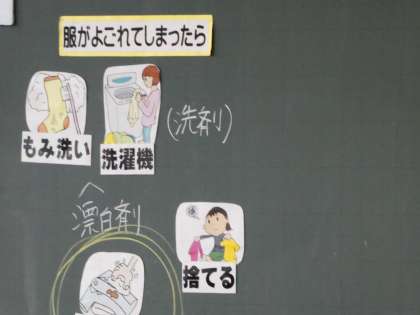 服がよごれてしまったら
もみ洗い
洗濯機
(洗剤)
漂白剤
捨てる